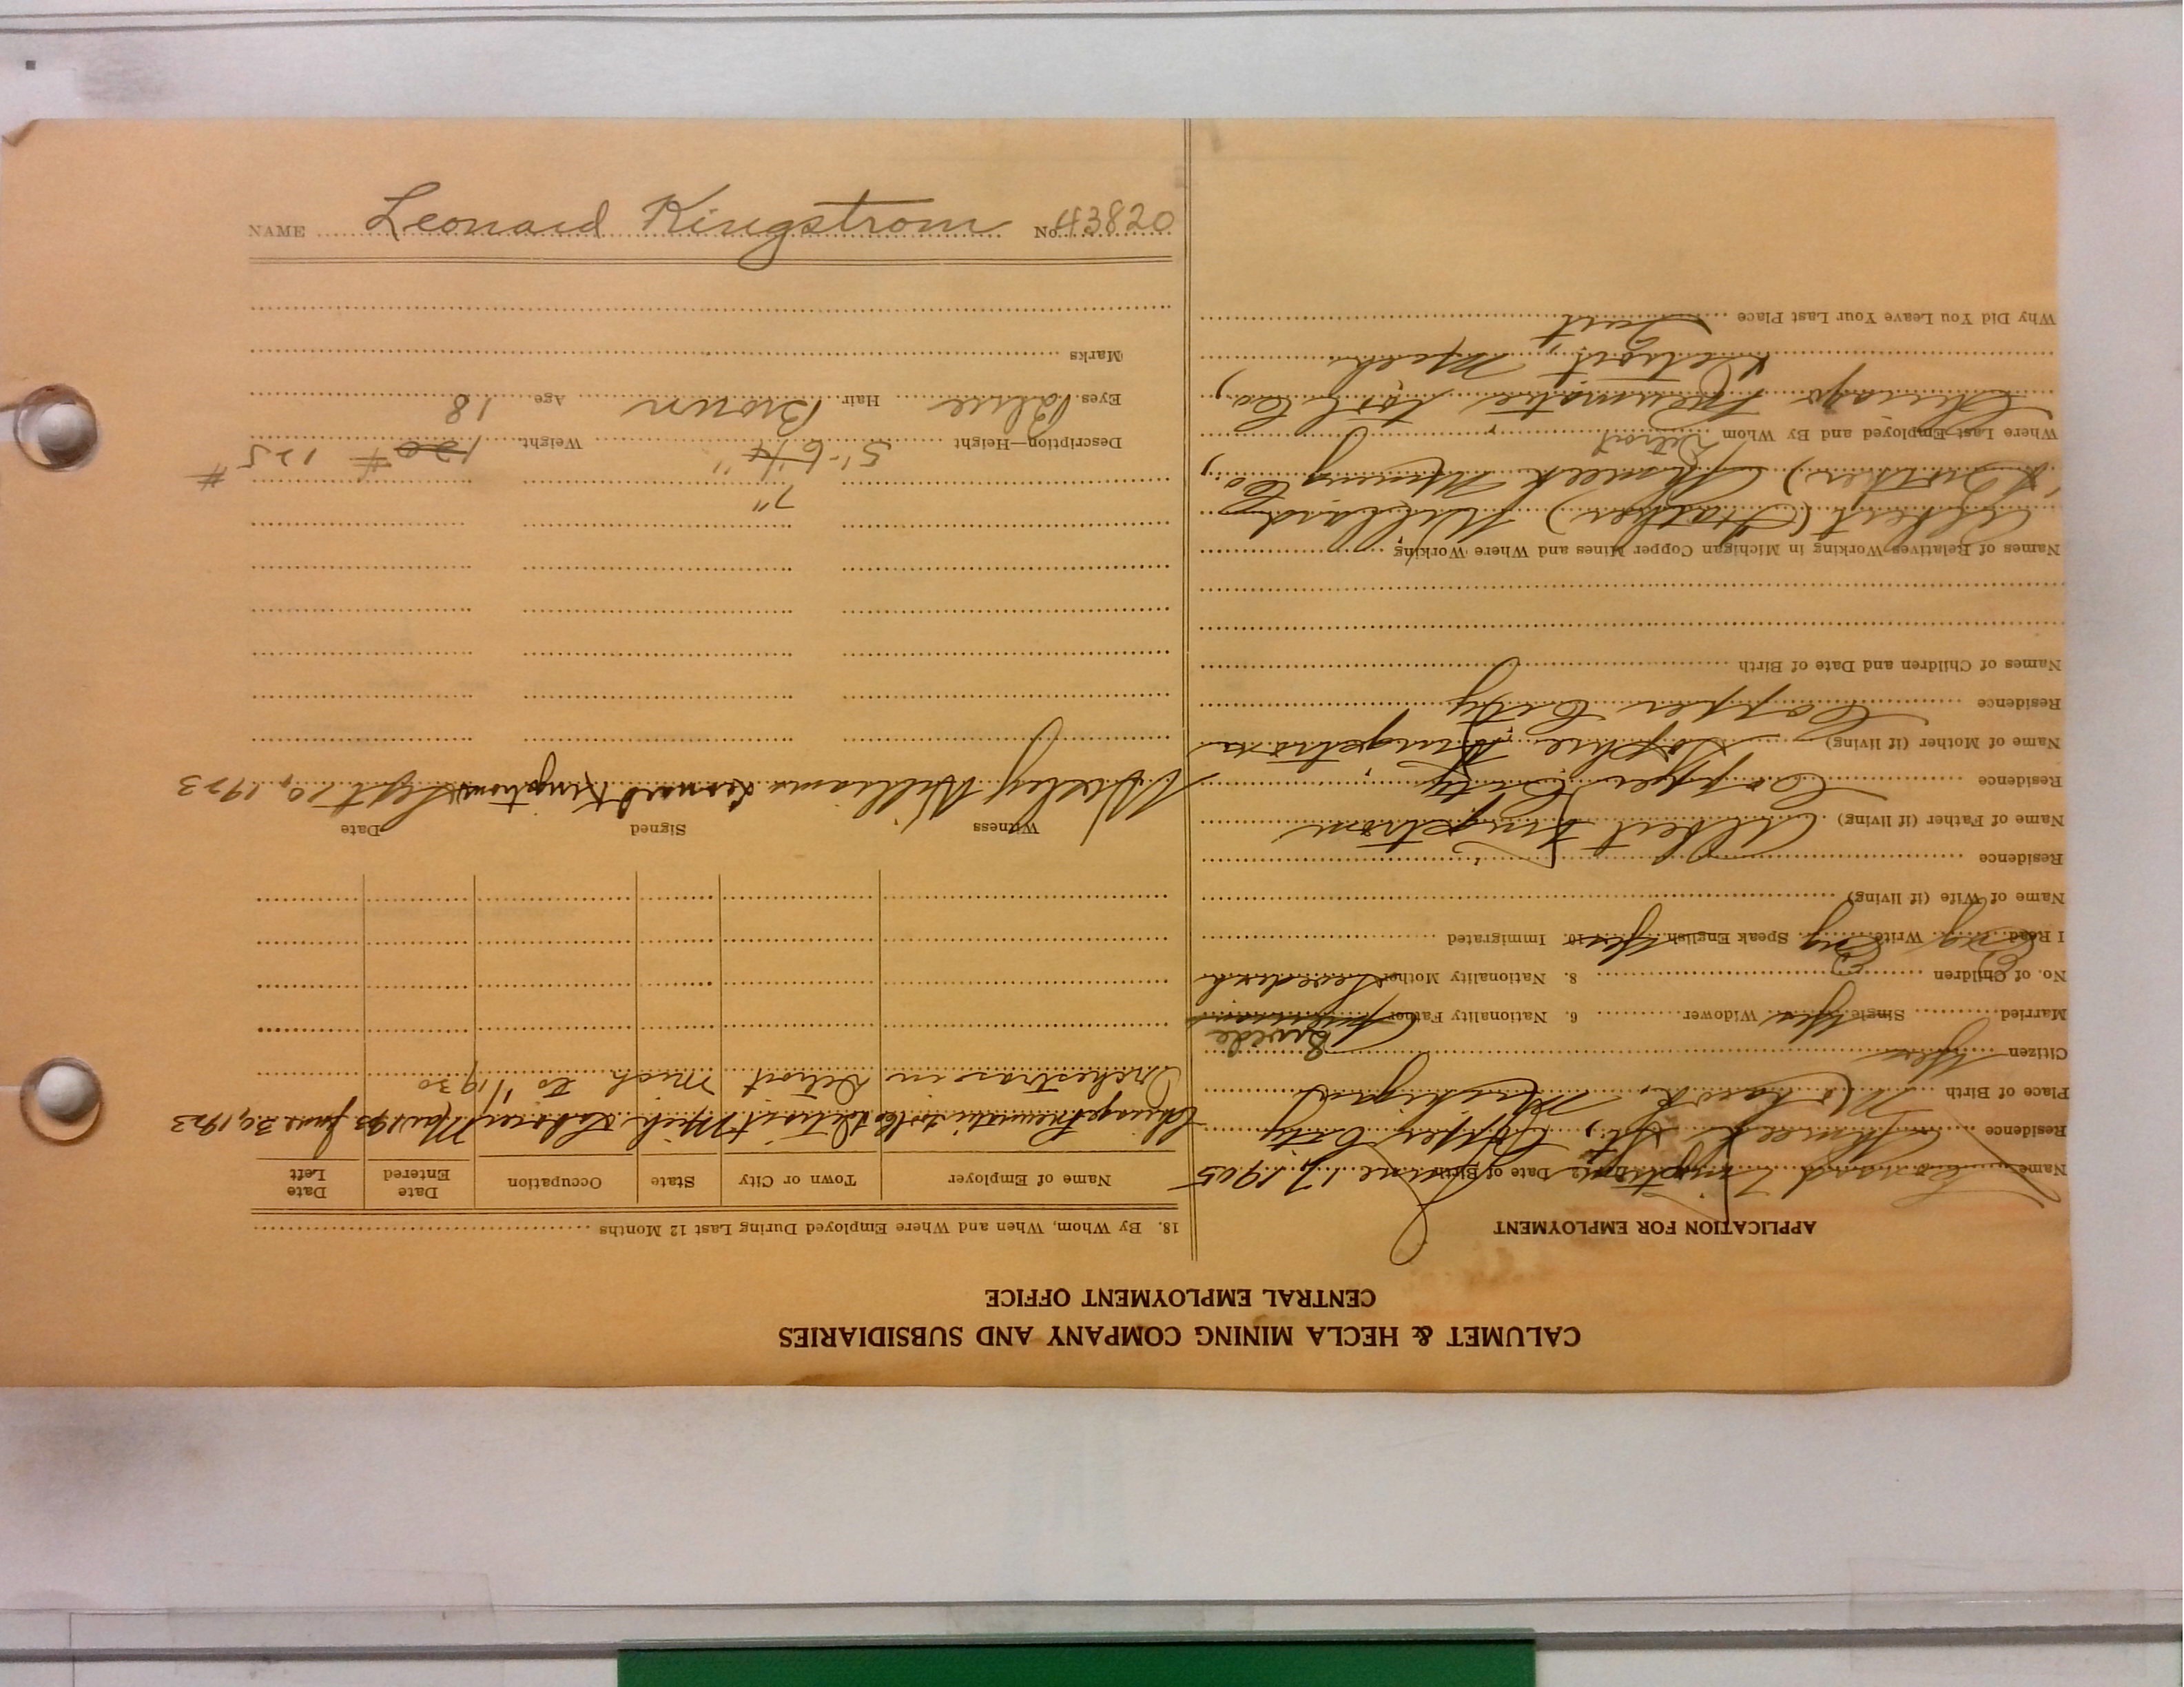 NAME Leonard Kingstrom No. 43820
CALUMET & HECLA MINING COMPANY AND SUBSIDIARIES
CENTRAL EMPLOYMENT OFFICE
APPLICATION FOR EMPLOYMENT
Name Leonard Kingstrom 2. Date of Birth June 17, 1905
Residence Ahmeek St., Copper City
Place of Birth Mohawk, Michigan
Citizen Yes Swede
Married Single Yes Widower 6. Nationality Father
No. of Children 8. Nationality Mother Swedish
I Read Eng Write Eng Speak English Yes 10. Immigrated
Name of Wife (if living)
Residence
Name of Father (if living) Albert Kingstrom
Residence Copper City
Name of Mother (if living) Sophie Kingstrom
Residence Copper City
Names of Children and Date of Birth
Names of Relatives Working in Michigan Copper Mines and Where Working
Albert (Father) Willard
(Brother) Ahmeek Mining Co.,
Where Last Employed and By Whom Detroit
Chicago Pneumatic Tool Co.,
Detroit, Mich
Why Did You Leave Your Last Place Quit
18. By Whom, When and Where Employed During Last 12 Months
Name of Employer Town or City State Occupation Date Entered Date Left
Chicago Pneumatic Tool Co Detroit Mich Laborer Mar 1923 June 30, 1923
Orchestras in Detroit Mich to 1/1930
Witness Signed Date
Wesley Williams Leonard Kingstrom Sept 10, 1923
7"
Description—Height 5'-6 1/4" Weight 120# 125#
Eyes Blue Hair Brown Age 18
Marks